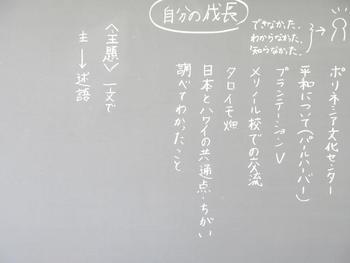 自分の成長
できなかった、
わからなかった、
知らなかった、
ポリネシア文化センター
平和について(パールハーバー)
プランテーションV
メリノール校での交流
タロイモ畑
日本とハワイの共通点・ちがい
調べてわかったこと
〈主題〉一文で
主→述語